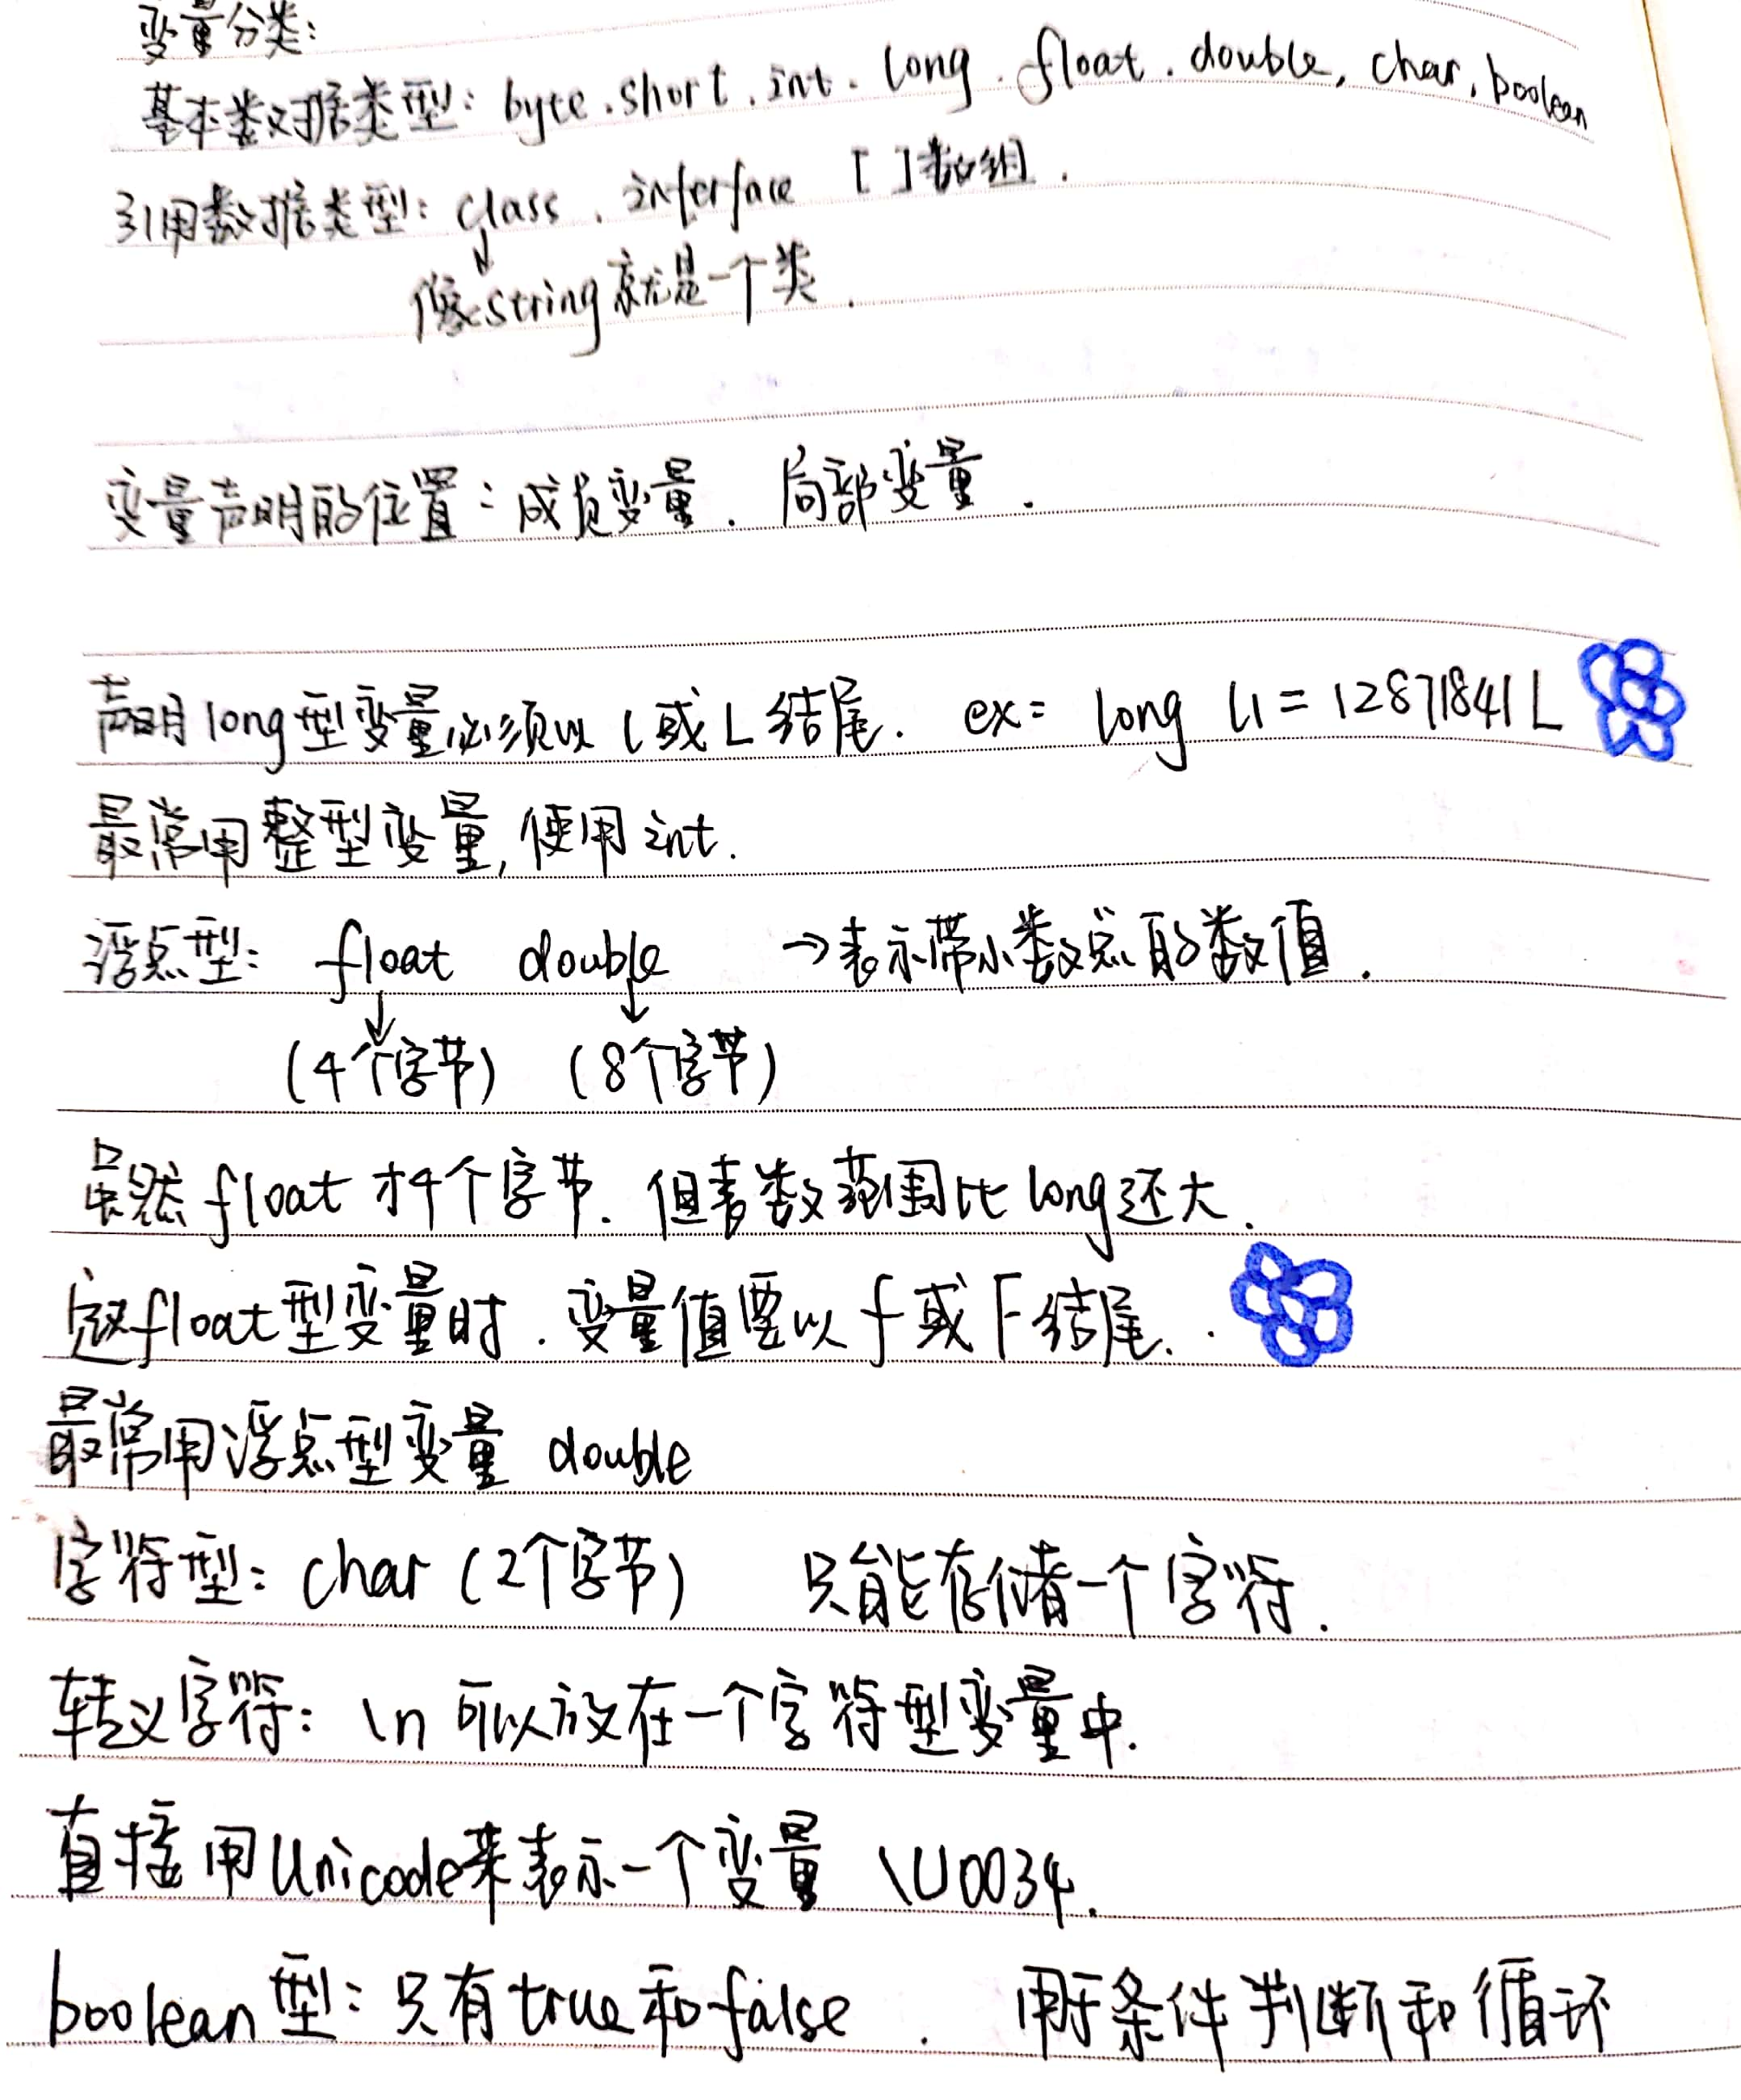 变量分类:
基本数据类型: byte.short.int.long.float.double,char,boolean
引用数据类型: class . interface [ ]数组.
像string就是一个类.
变量声明的位置: 成员变量. 局部变量.
声明long型变量必须以l或L结尾. ex= long l1 = 12871841L
最常用整型变量,使用int.
浮点型: float double →表示带小数点的数值.
(4个字节) (8个字节)
虽然float才4个字节. 但表数范围比long还大.
定义float型变量时.变量值要以f或F结尾.
最常用浮点型变量 double
字符型: char (2个字节) 只能存储一个字符.
转义字符: \n 可以放在一个字符型变量中.
直接用Unicode来表示一个变量 \U0034.
boolean型: 只有true和false . 用于条件判断和循环